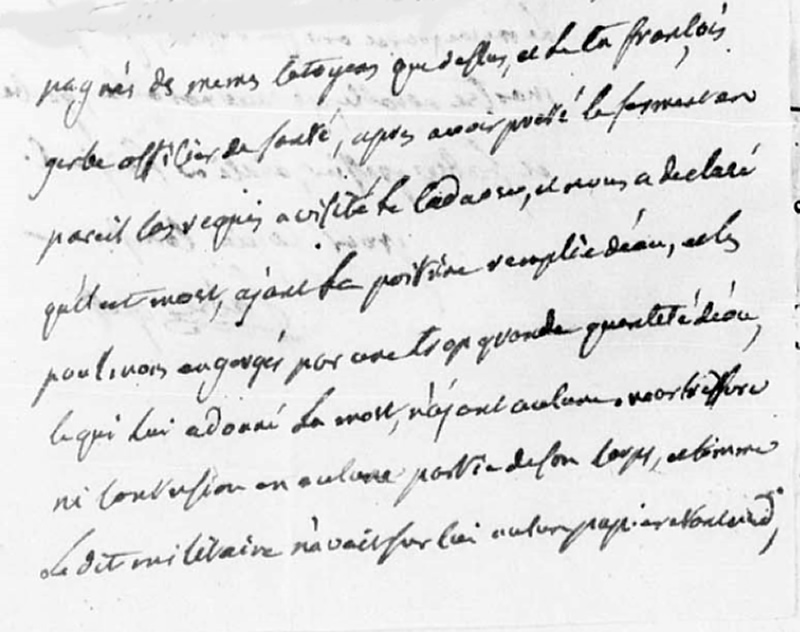 pagnés des memes Citoyens que dessus, et le Cn françois
gerbe officier de santé, apres avoir presté le serment en
pareil cas requis a visité le Cadavre, et nous a declaré
qu'il est mort, ajant la poitrine remplie déau, et les
poulmons engorgés par une trop grande quantité déau,
ce qui lui a donné la mort, n'ajant aucune meurtrissure
ni Contusion en aucune partie de son Corps, et comme
le dit militaire n'avait sur lui aucun papier